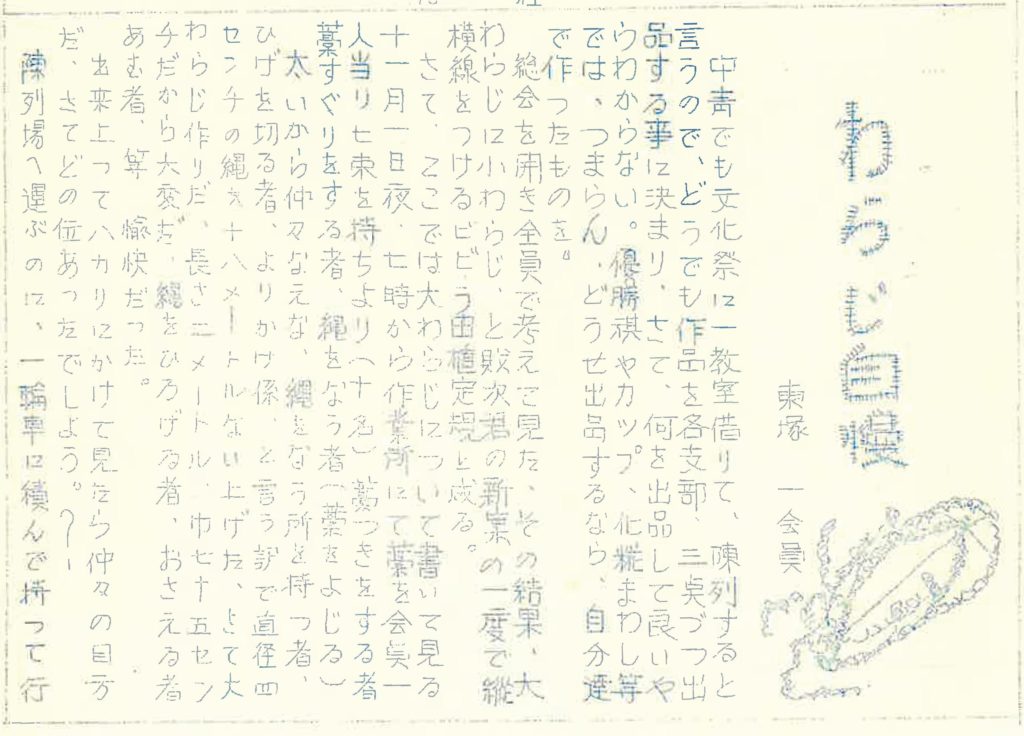 わらじ自慢
東塚 一会員
中青でも文化祭に一教室借りて、陳列すると
言うので、どうでも作品を各支部、三点づつ出
品する事に決まり、さて、何を出品して良いや
らわからない。優勝旗やカップ、化粧まわし等
では、つまらん、どうせ出品するなら、自分達
で作ったものを。
総会を開き全員で考えて見た、その結果、大
わらじに小わらじ、と敗次君の新案の一度で縦
横線をつけるビビう田植定規と成る。
さて、ここでは大わらじについて書いて見る
十一月一日夜、七時から作業所にて藁を会員一
人当り七束を持ちより(十名)藁つきをする者
藁すぐりをする者、縄をなう者(藁をよじる)
太いから仲々なえな、縄をなう所を持つ者、
ひげを切る者、よりかけ係、と言う訳で直径四
センチの縄を十八メートルない上げた、さて大
わらじ作りだ、長さ二メートル、巾七十五セン
チだから大変だ、縄をひろげる者、おさえる者
あむ者、等 愉快だった。
出来上ってハカリにかけて見たら仲々の目方
だ、さてどの位あったでしよう。?ー
陳列場へ運ぶのに、一輪車に積んで持って行